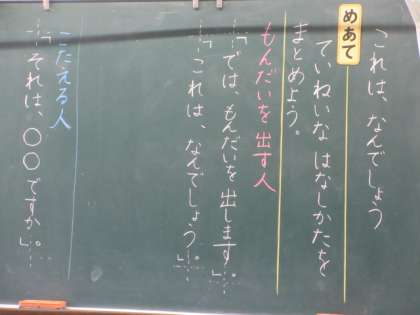 これは、なんでしょう
めあて
ていねいなはなしかたを
まとめよう。
もんだいを出す人
「では、もんだいを出します。」
「これは、なんでしょう。」
こたえる人
「それは、○○ですか。」